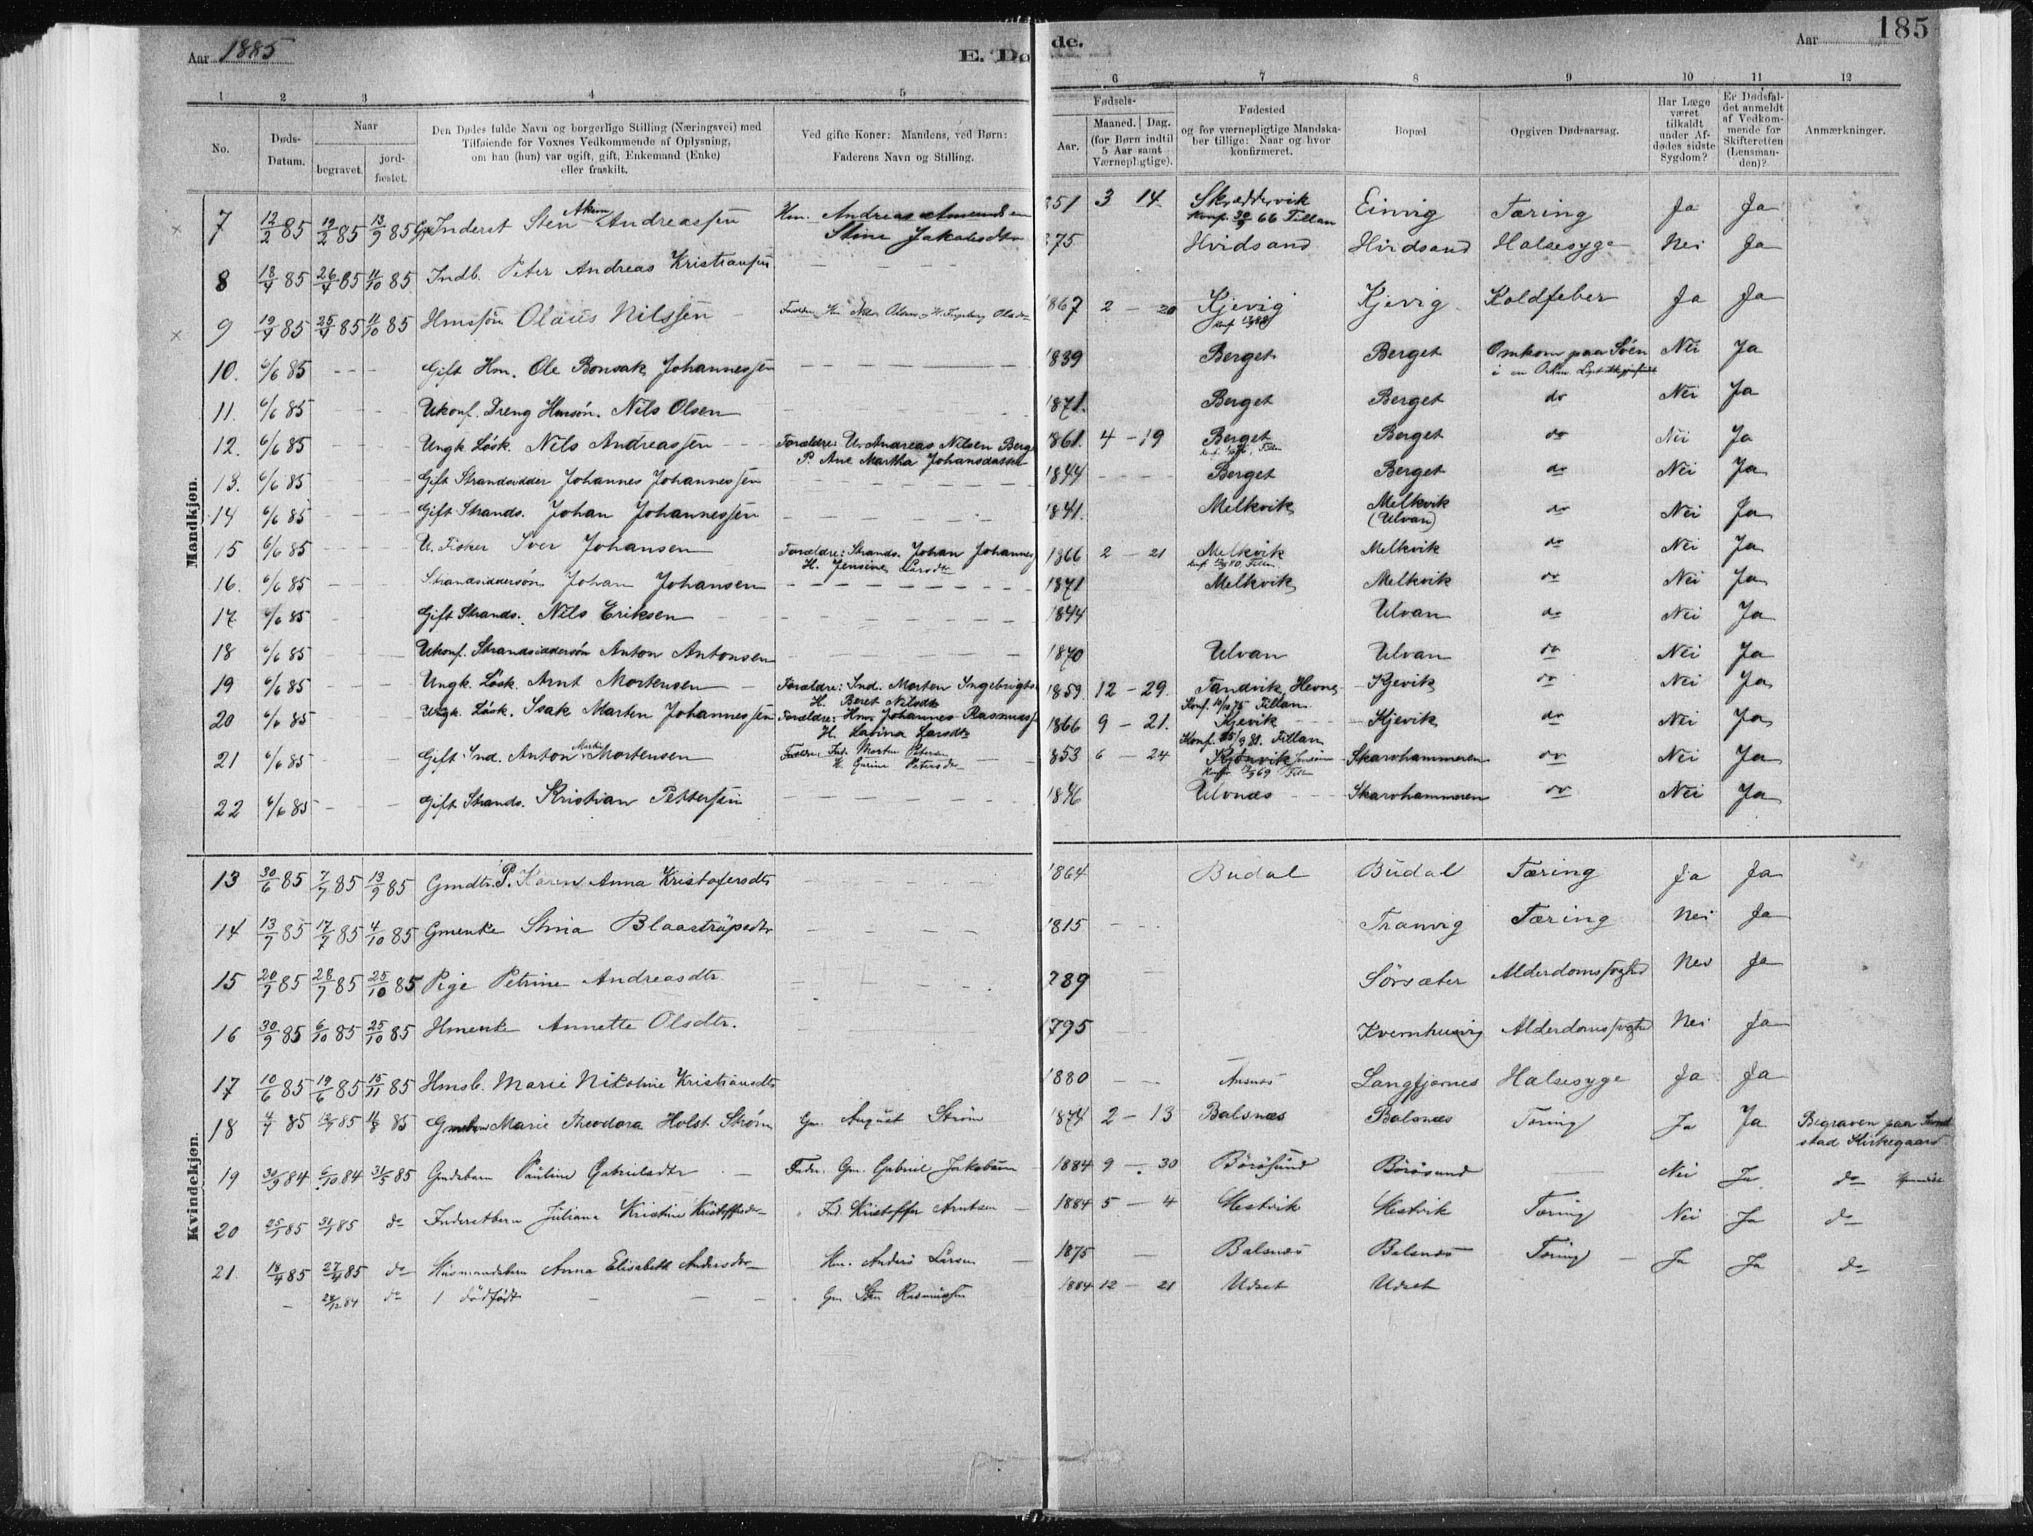 Aar 1885
E. Dø de.
Aar
185
1 2 3 4 5 6 7 8 9 10 11 12
No. Døds-Datum. Naar begravet. jord-fæstet. Den Dødes fulde Navn og borgerlige Stilling (Næringsvei) med Tilføiende for Voxnes Vedkommende af Oplysning, om han (hun) var ugift, gift, Enkemand (Enke) eller fraskilt. Ved gifte Koner: Mandens, ved Børn: Faderens Navn og Stilling. Fødsels- Aar. Maaned. Dag. (for Børn indtil 5 Aar samt Værnepligtige). Fødested og for værnepligtige Mandska-ber tillige: Naar og hvor konfirmeret. Bopæl Opgiven Dødsaarsag. Har Læge været tilkaldt under Af-dødes sidste Sygdom? Er Dødsfal-det anmeldt af Vedkom-mende for Skifteretten (Lensman-den)? Anmærkninger.
Mandkjøn.
7 12/2 85 19/2 85 13/9 85 Inderst Sten Andreassen Hm. Andreas Amundsen Stine Jakobsdtr 851 3 14 Skræddervik Konf. 66 Fillan Einvig Tæring Ja Ja
8 18/4 85 26/4 85 11/10 85 Indb. Peter Andreas Kristiansen 875 Hvidsand Hvidsand Halsesyge Nei Ja
9 19/4 85 25/4 85 11/10 85 Hmssøn Olaus Nilssen 1867 2 - 20 Kjevig Kjevig Koldfeber Ja Ja
10. 6/6 85 Gift Hm. Ole Bonsak Johannessen 1839 Berget Berget Omkom paa Søen Nei Ja
11. 6/6 85 Ukonf. Dreng Hmssøn. Nils Olsen 1871. Berget Berget do Nei Ja
12. 6/6 85 Ungk. Løsk. Nils Andreassen Forældre: U. Andreas Nilsen Berg P. Ane Martha Johansdatter 1861. 4 - 19 Berget Berget do Nei Ja
13. 6/6 85 Gift Strandsidder Johannes Johannessen 1844 Berget Berget do Nei Ja
14 6/6 85 Gift Strands. Johan Johannessen 1841. Melkvik Melkvik (Ulvan) do Nei Ja
15 6/6 85 U. Fisker Iver Johansen Forældre: Strands. Johan Johannes H. Jensine Larsdtr 1866 2 - 21 Melkvik Melkvik do Nei Ja
16. 6/6 85 Strandsiddersøn Johan Johansen 1871 Melkvik Melkvik do Nei Ja
17 6/6 85 Gift Strands. Nils Eriksen 1844 Ulvan do Nei Ja
18 6/6 85 Ukonf. Strandsiddersøn Anton Antonsen 1870 Ulvan Ulvan do Nei Ja
19 6/6 85 Ungk. Løsk. Arnt Mortensen Forældre: Ind. Morten Ingebrigts H. Beret Nilsdtr 1859 12 - 29. Tandvik, Hevne Fillan Kjevik do Nei Ja
20 6/6 85 Ungk. Løsk. Isak Martin Johannessen Forældre: Hm. Johannes Rasmuss H. Lavina Larsdtr 1866 9 - 21. Kjevik Konf. 25/9 81. Fillan Kjevik do Nei Ja
21 6/6 85 Gift Ind. Anton Martin Mortensen Ind. Morten Petersen H. Gurine Petersdtr 1853 6 - 24 Skarvhammeren do Nei Ja
22 6/6 85 Gift Strands. Kristian Pettersen 1846 Ulvnæs Skarvhammeren do Nei Ja
Kvindekjøn.
13 30/6 85 7/7 85 13/9 85 Gmdtr. P. Karen Anna Kristofersdtr 1864 Budal Budal Tæring Ja Ja
14 13/7 85 17/7 85 4/10 85 Gmenke Stina 1815 Tranvig Tæring Nei Ja
15 20/7 85 28/7 85 25/10 85 Pige Petrine Andreasdtr. 1789 Sörsæter Alderdomssvaghed Nei Ja
16 30/9 85 6/10 85 25/10 85 Hmenke Annette Olsdtr. 1795 Kvernhusvig Alderdomssvaghed Nei Ja
17 10/6 85 19/6 85 15/11 85 Hmsb. Marie Nikoline Kristiansdtr 1880 Ansnæs Langfjernes Halsesyge Ja Ja
18 4/7 85 85 85 Marie Theodora Holst Strøm Gm. August Strøm 1874 2 - 13 Balsnæs Balsnæs Tæring Ja Ja Begraven paa stad Kirkegaard
19 30/9 84 6/10 84 31/5 85 Gmdsbarn Pauline Gabrielsdtr Fader. Gm. Gabriel Jakobsen 1884 9 - 30 Börösund Börösund Nei Ja do
20 25/1 85 31/1 85 do Inderstbarn Juliana Kristine Kristoffersdtr Ind. Kristoffer Arntsen 1884 5 - 4 Hestvik Hestvik Tæring Nei Ja do
21. 18/4 85 27/4 85 do Husmandsbarn Anna Elisabeth Andersdtr Hm. Anders Larsen 1875 Balsnæs Balsnæs Tæring Ja Ja do
84 do 1 dødfødt Gm Sten Rasmussen 1884 12 - 21 Udset Udset